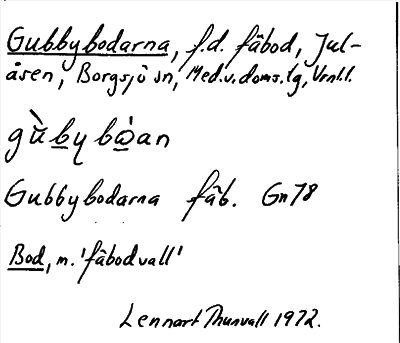 Gubbybodarna, f.d. fäbod, Jul-
åsen, Borgsjö sn, Med.v.doms.lg, Vrnl.l.
gù̀bybὼan
Gubbybodarna fäb. Gn78
Bod, m. 'fäbodvall'
Lennart Thunvall 1972.